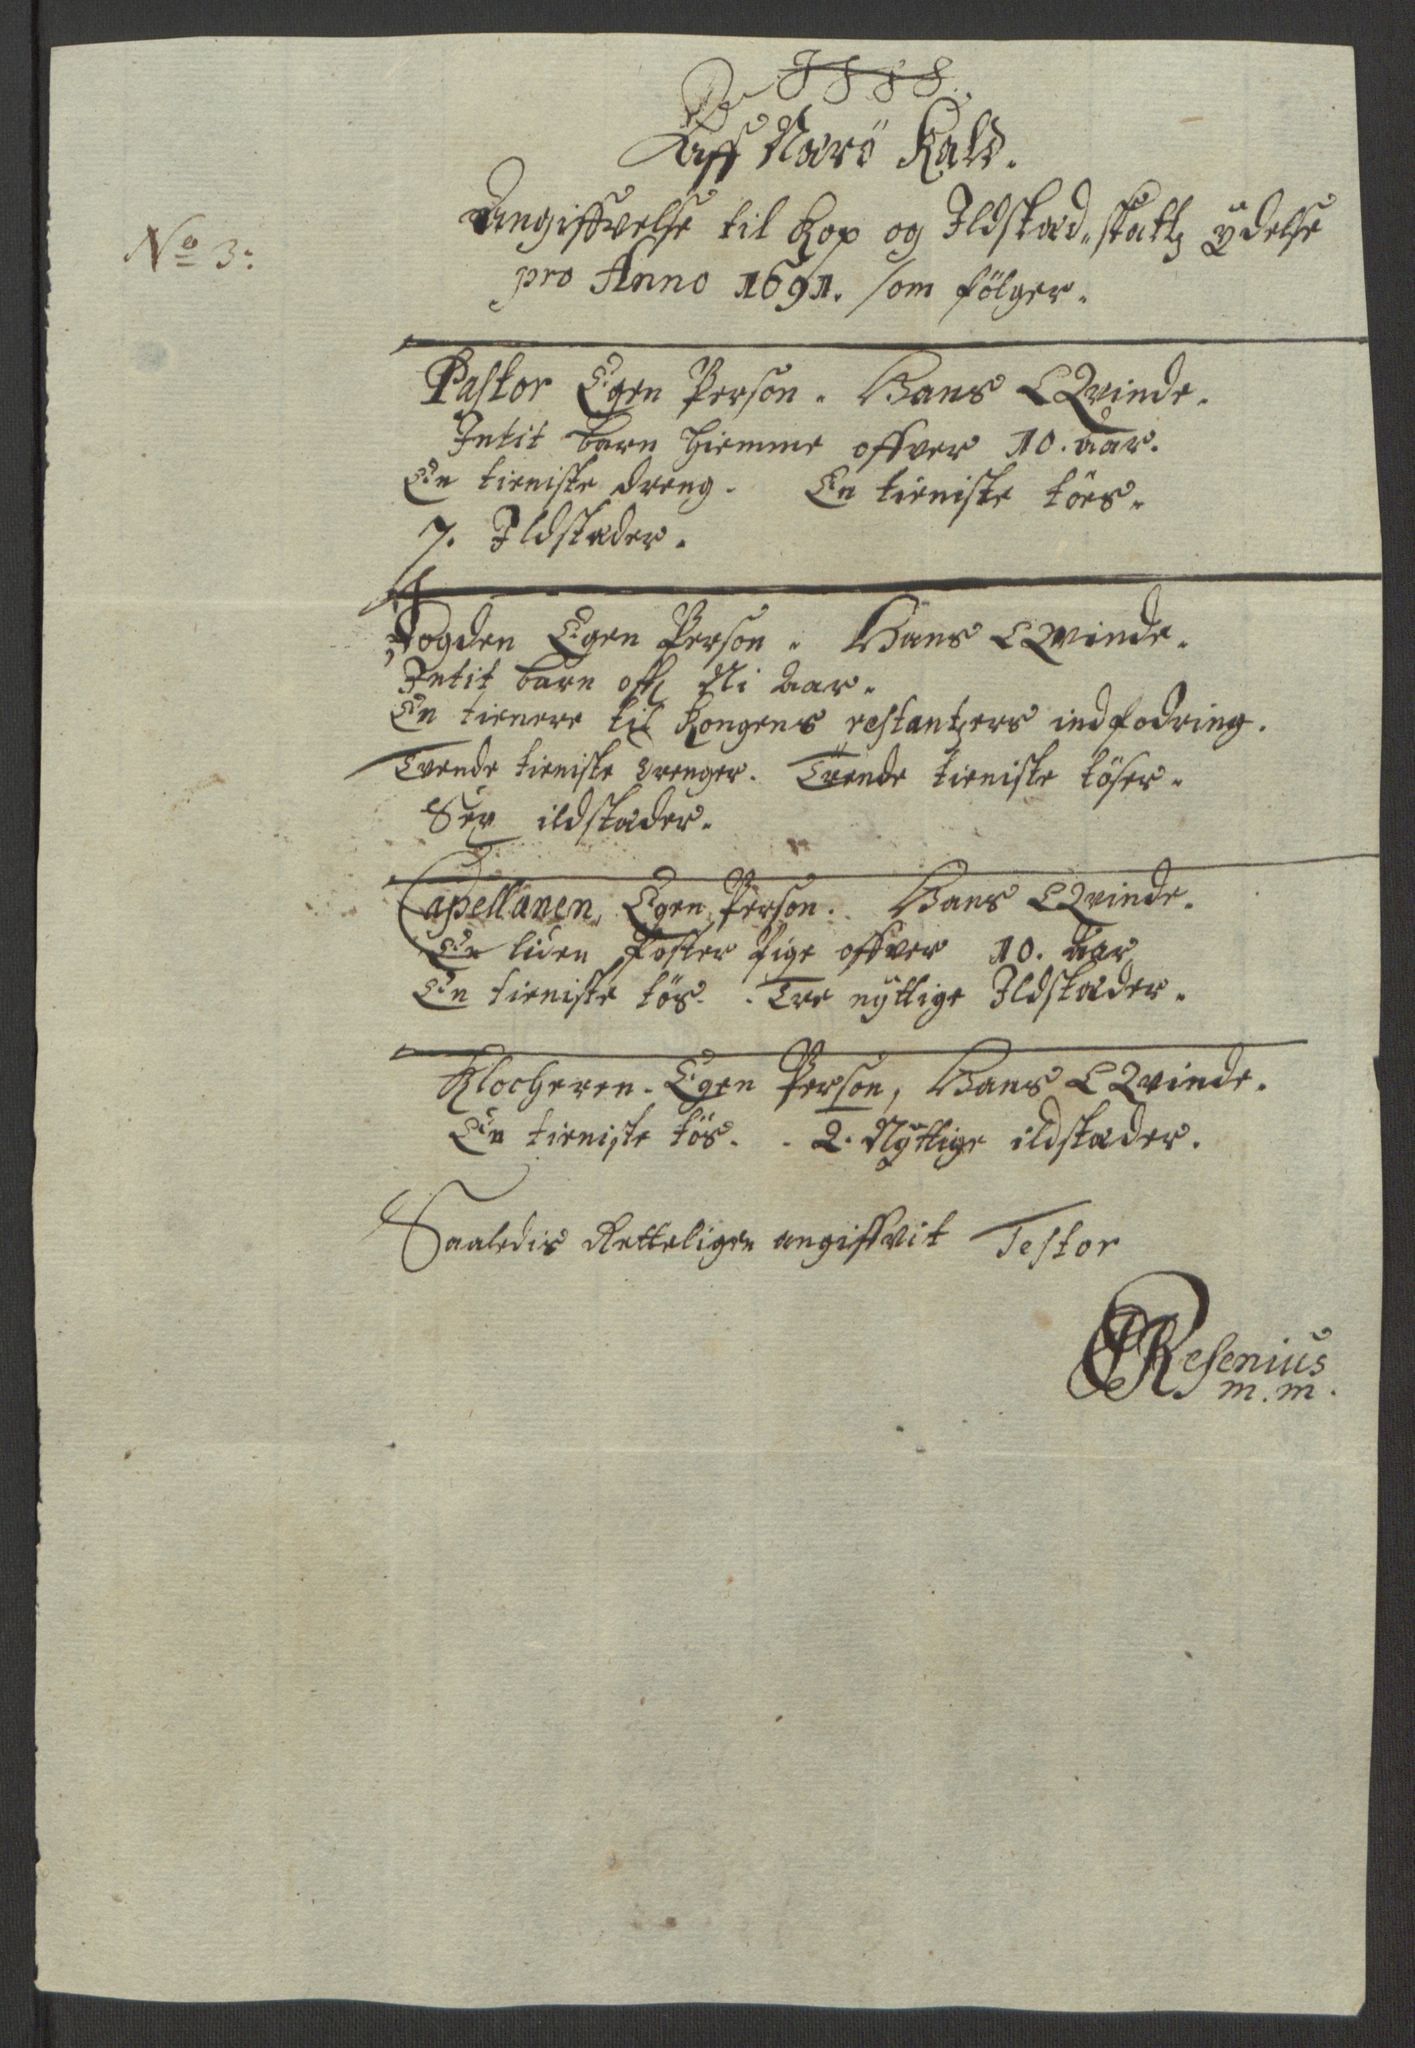 Aff Narö Kald.
Angiffvelse til Kop og Ildstad, skattz ydelse
No 3:
pro Anno 1691. som fölger.
Pastor Egen Person. Hans Qvinde.
Intit barn hiemme offver 10. aar.
En tieniste dreng. En tieniste töes.
7. Ildstader.
Fogden Egen Person. Hans Qvinde.
Intit barn off Ni aar.
En tienere til Kongens restantzers indfodring.
Tvende tieniste drenger. Trende tieniste töser.
Sex ildstader.
Capellanen, Egen Person. Hans Qvinde.
En liden foster Pige offver 10. aar
En tieniste tös. Tre nyttige Ildstader.
Klocheren. Egen Person, Hans Qvinde.
En tieniste tös. 2. Nyttige ildstader.
Saaledis Retteligen angiffvit Testor
Resenius
m.m.